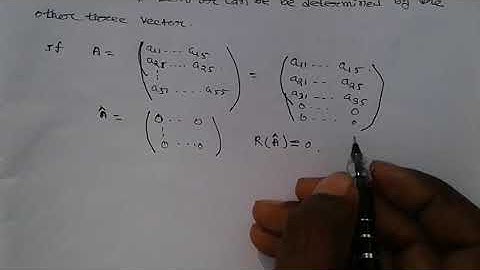 can be be determined by the
other three vector.
If A = (a11 ... a15 a25 ... a25 ⋮ a51 ... a55) = (a11 ... a15 a21 .. a25 a31 ... a35 0 ... 0 0 ... 0)
Â = (0 ... 0 ⋮ 0 ... 0) R(Â) = 0.